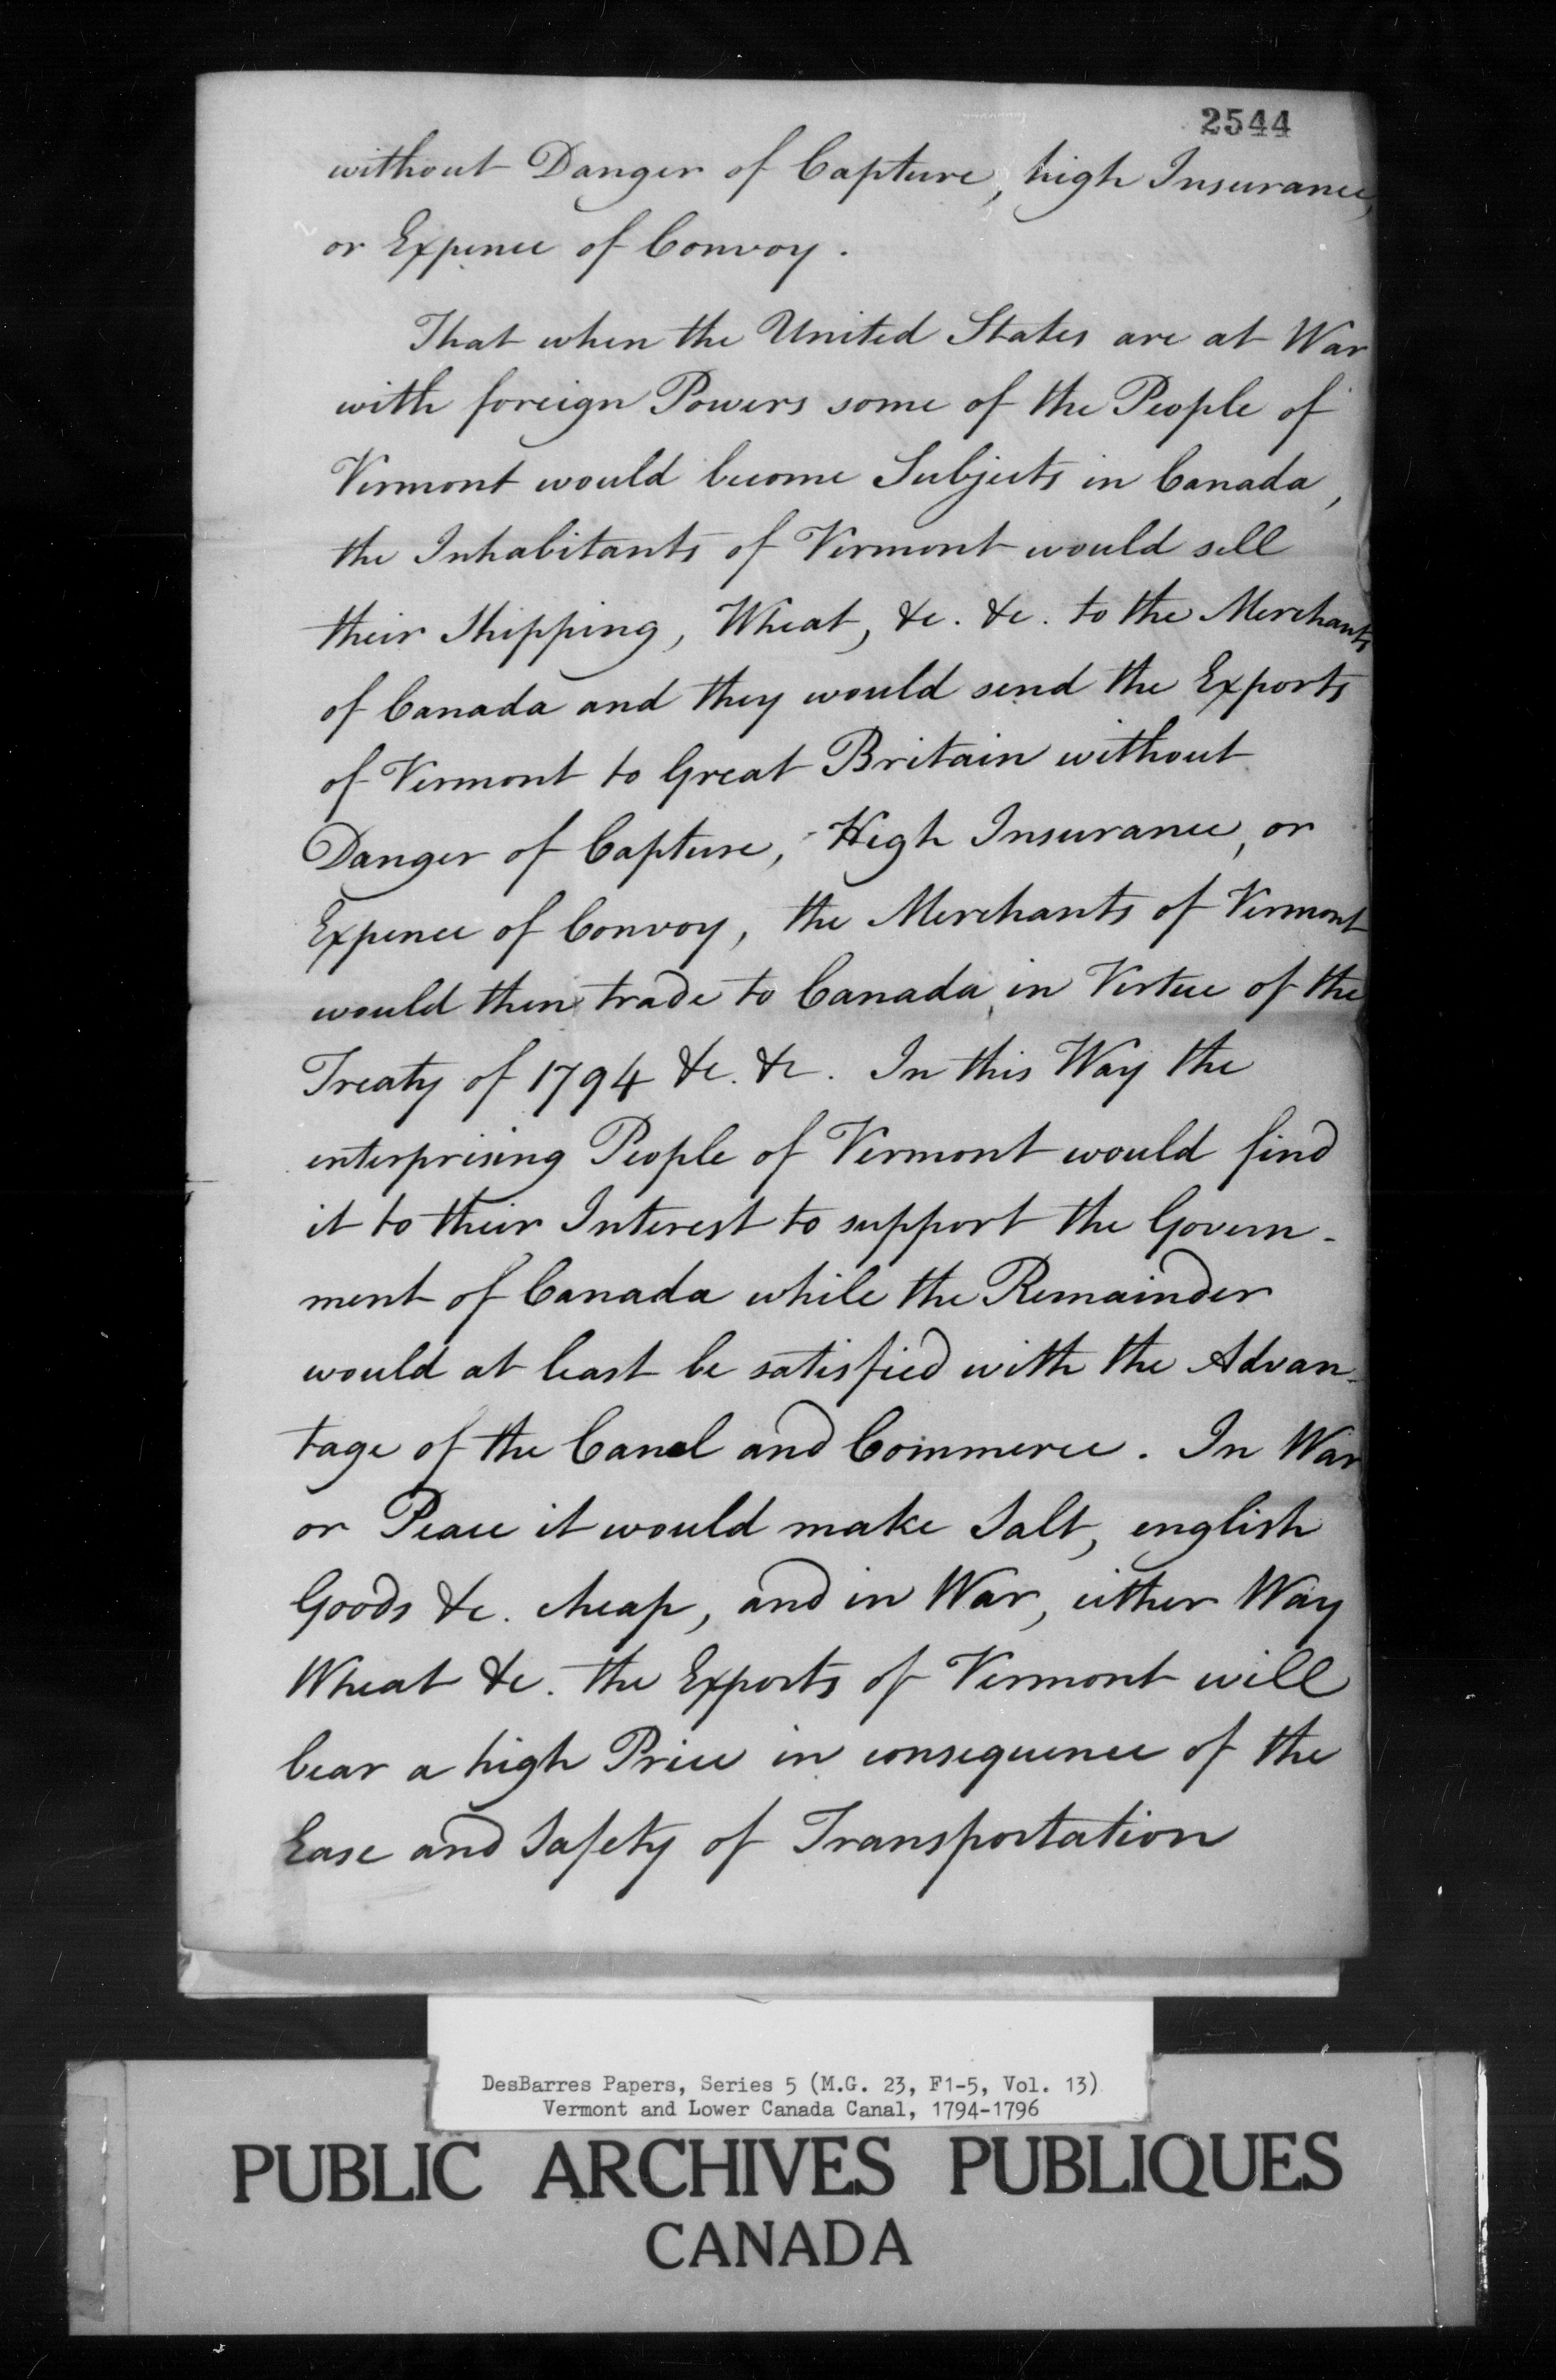 2544
without Danger of Capture, high Insurance,
or Expence of Convoy.
That when the United States are at War
with foreign Powers some of the People of
Vermont would become Subjects in Canada,
the Inhabitants of Vermont would sell
their Shipping, Wheat, &c. &c. to the Merchants
of Canada and they would send the Exports
of Vermont to Great Britain without
Danger of Capture, High Insurance, or
Expence of Convoy, the Merchants of Vermont
would then trade to Canada, in Virtue of the
Treaty of 1794 &c. &c. In this Way the
enterprising People of Vermont would find
it to their Interest to support the Govern-
ment of Canada while the Remainder
would at least be satisfied with the Advan-
tage of the Canal and Commerce. In War
or Peace it would make Salt, english
Goods &c. cheap, and in War, either Way
Wheat &c. the Exports of Vermont will
bear a high Price in consequence of the
Ease and Safety of Transportation
DesBarres Papers, Series 5 (M.G. 23, F1-5, Vol. 13)
Vermont and Lower Canada Canal, 1794-1796
PUBLIC ARCHIVES PUBLIQUES
CANADA